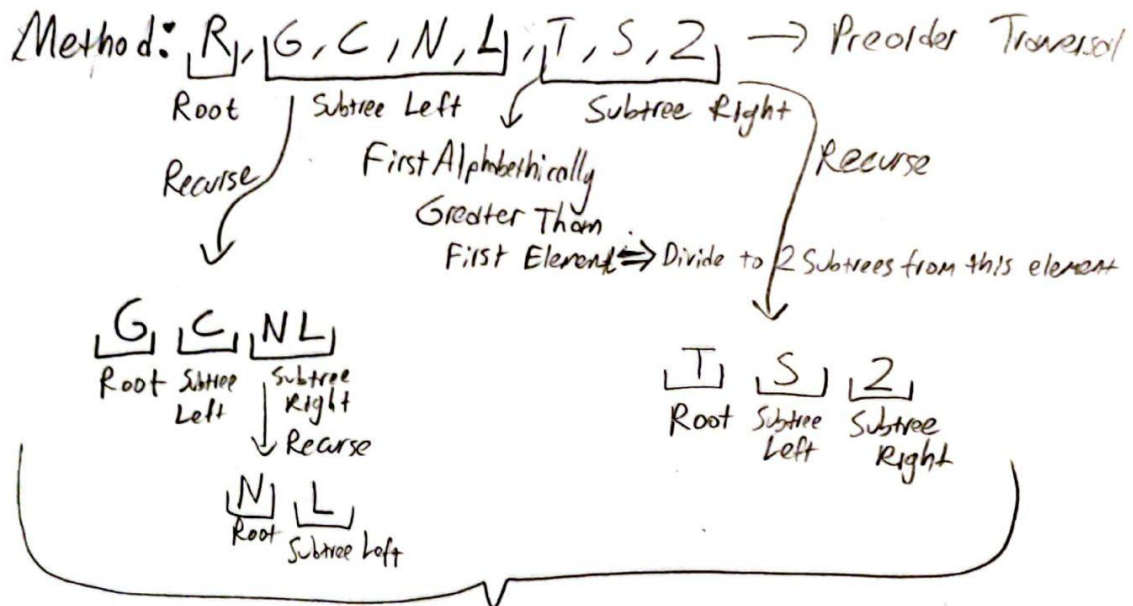 Method: R, G, C, N, L, T, S, Z → Preorder Traversal
Root Subtree Left Subtree Right
Recurse First Alphabethically Recurse
Greater Than
First Element ⇒ Divide to 2 Subtrees from this element
G C NL
Root Subtree Left Subtree Right
T S Z
Root Subtree Left Subtree Right
Recurse
N L
Root Subtree Left